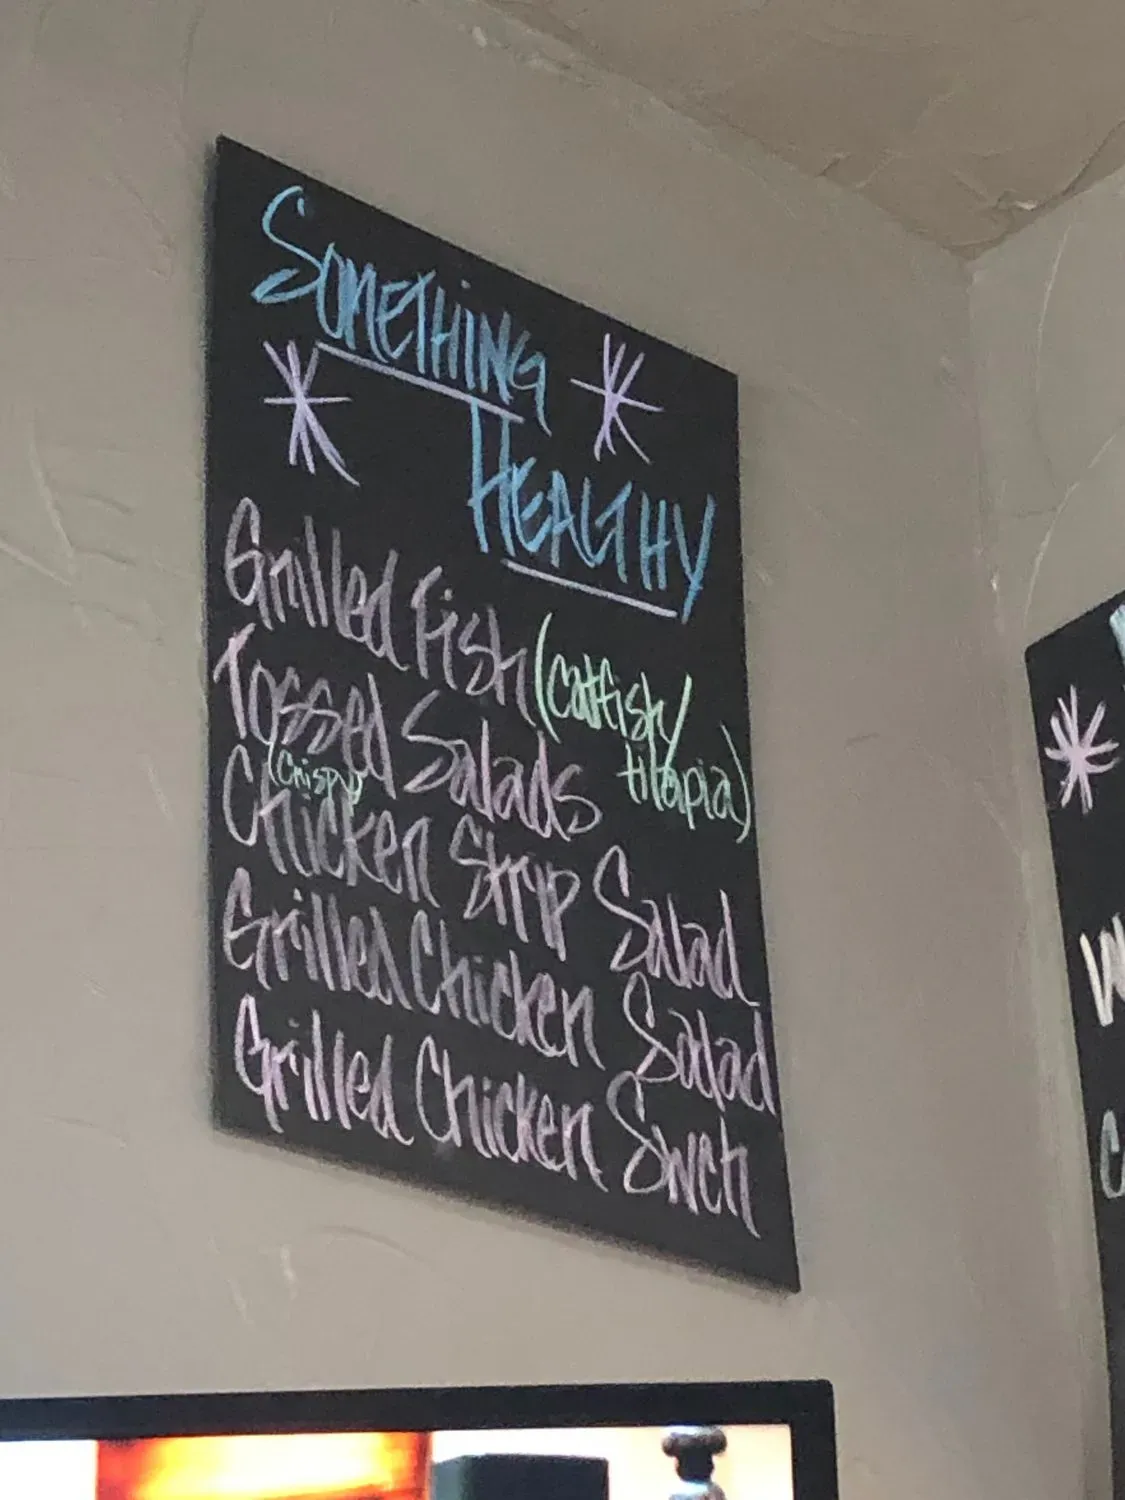 SOMETHING
HEALTHY
Grilled Fish (catfish/
tilapia)
Tossed Salads
(crispy)
Chicken Strip Salad
Grilled Chicken Salad
Grilled Chicken Swch